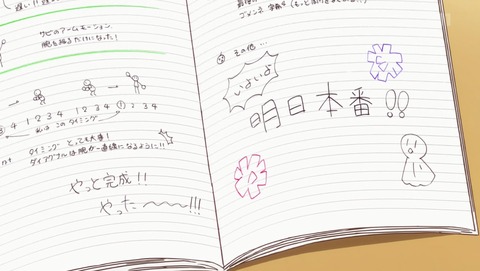 サビのアームモーション
腕を振るだけになった!
4 1 2 3 4 1 2 3 4 ① 2 3 4
タイミングとっても大事!
ダイアグナルは腕が一直線になるように!!
やっと完成!!
やったーー〜!!!
その他...
いよいよ
明日本番!!